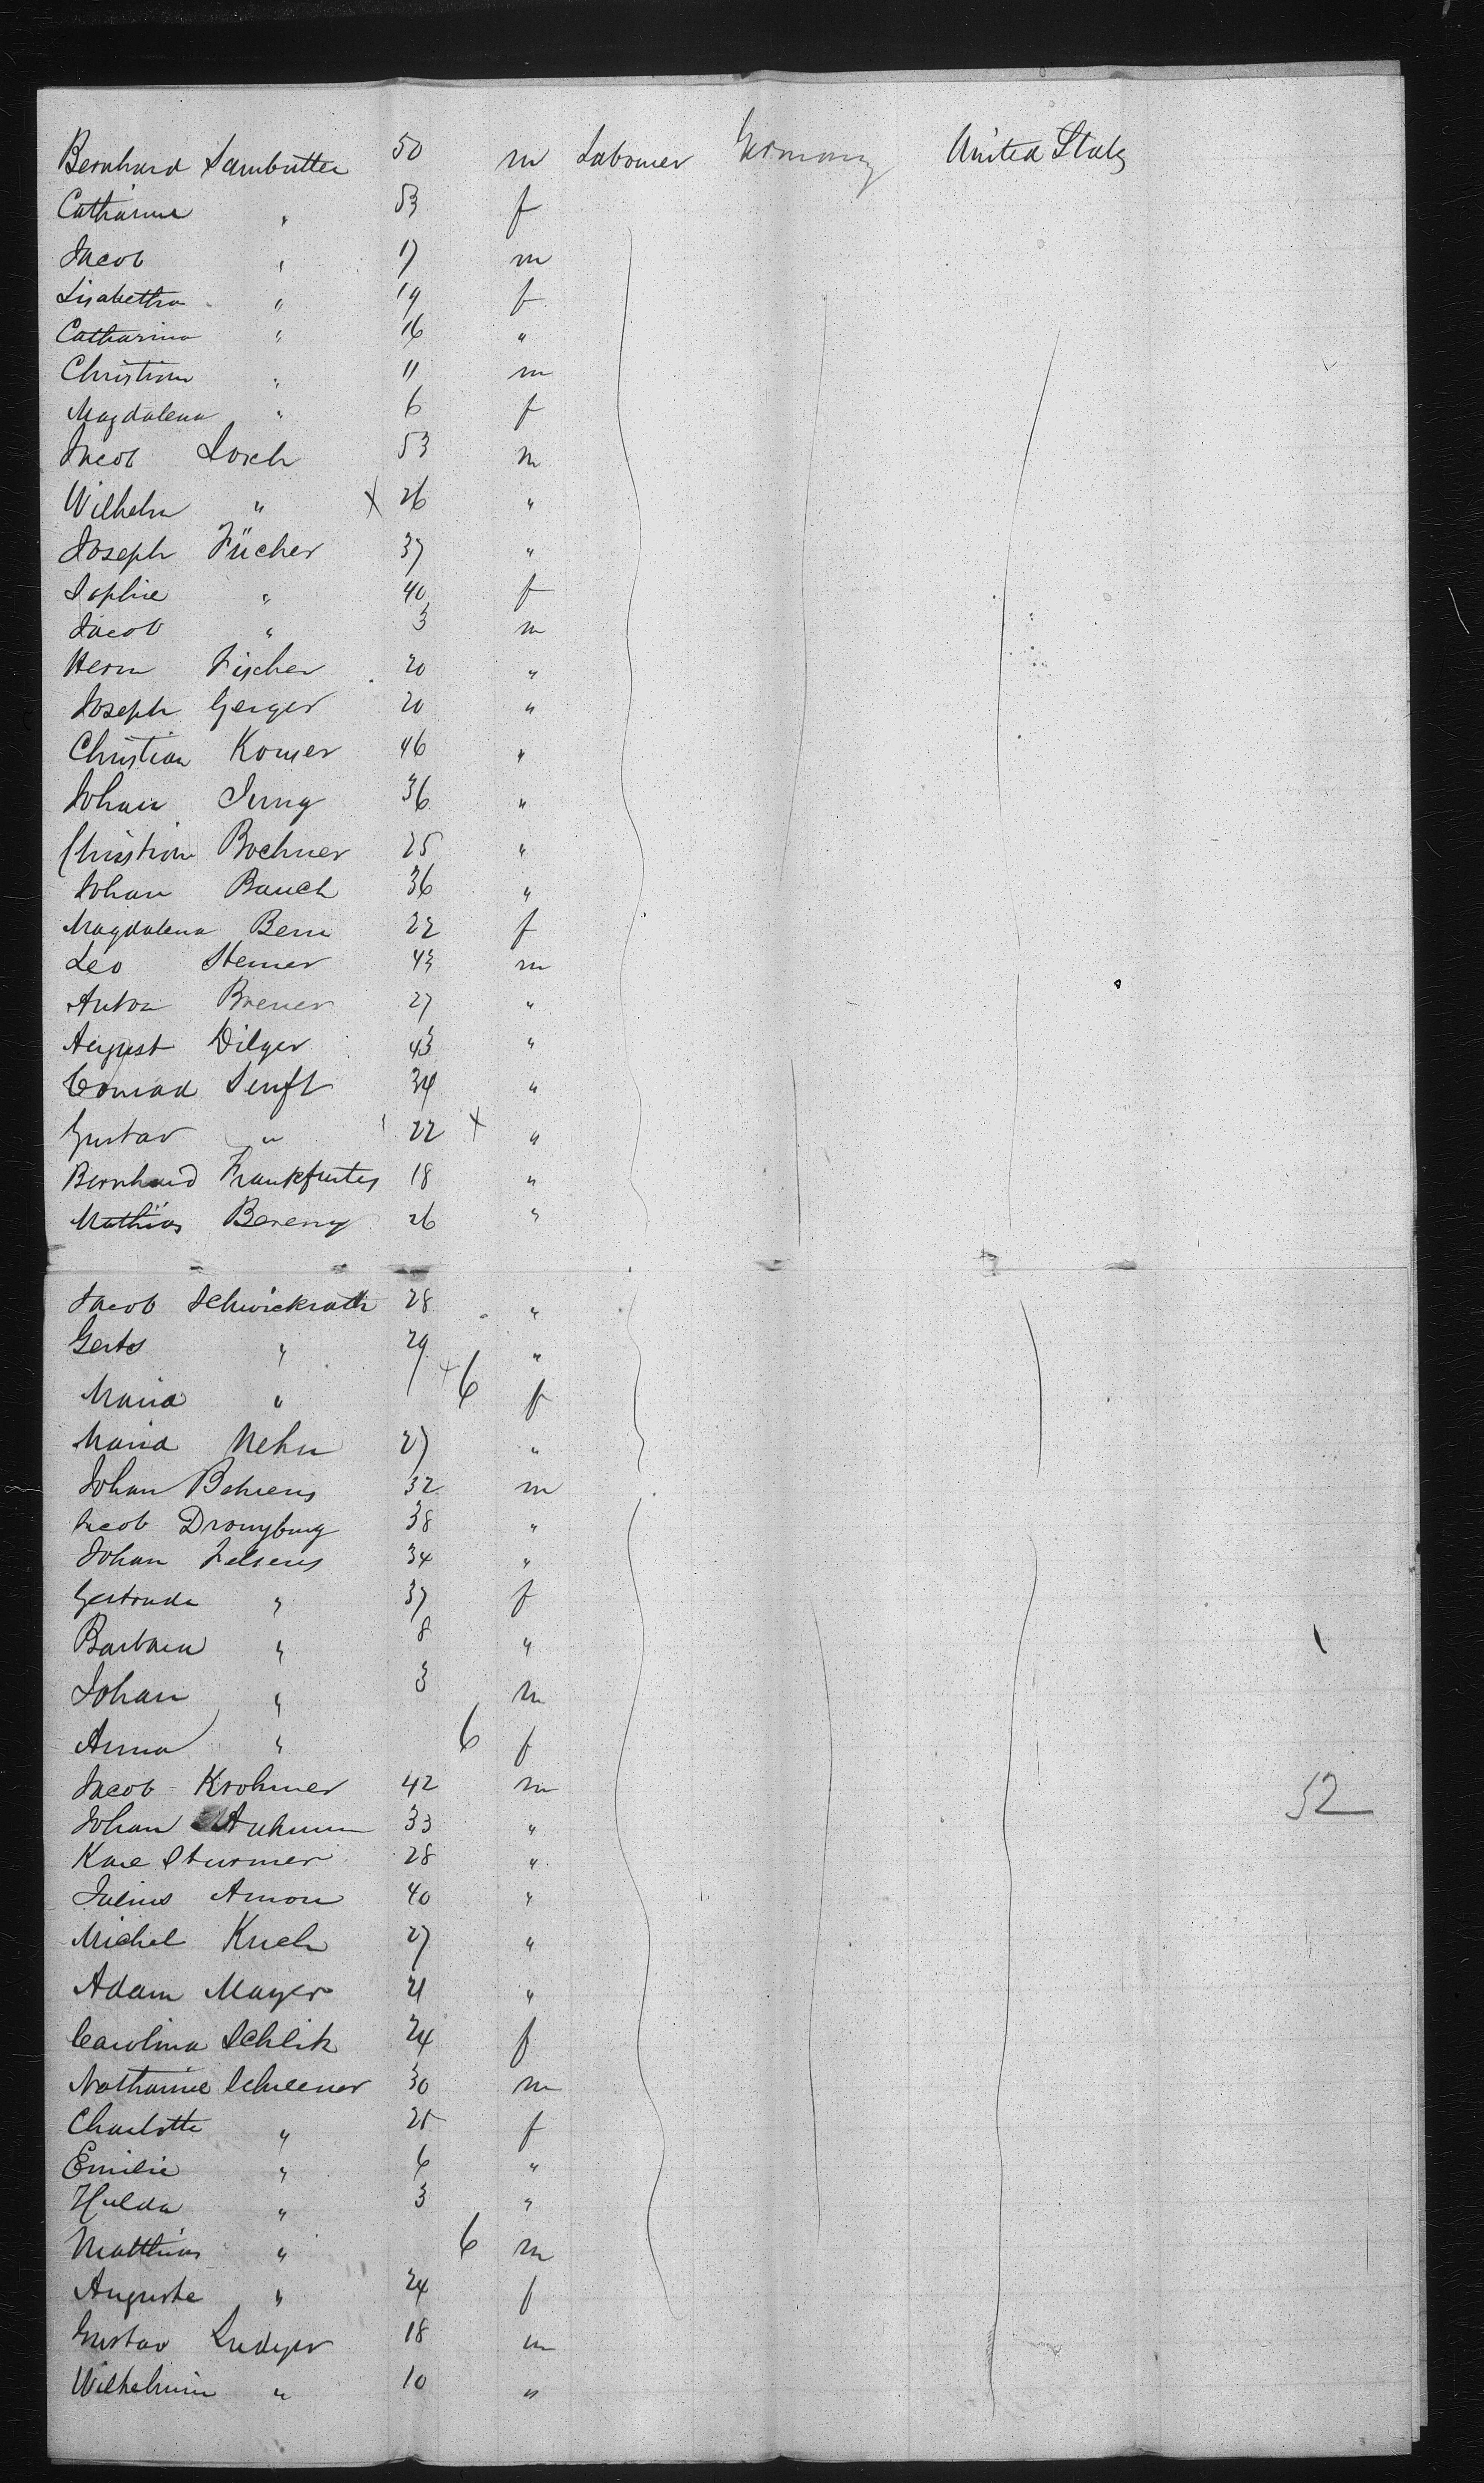 Bernhard Lambutter 50 m Labourer Germany United States
Catharine " 53 f
Jacob " 17 m
Lisabetha " 19 f
Catharina " 16 "
Christian " 11 m
Magdalena " 6 f
Jacob Lorch 53 m
Wilhelm " X 26 "
Joseph Fücher 37 "
Sophie " 40 f
Jacob " 3 m
Herm Fischer 20 "
Joseph Geiger 20 "
Christian Komer 46 "
Johan Jung 36 "
Christian Bochner 25 "
Johan Bauch 36 "
Magdalena Bern 22 f
Leo Steiner 43 m
Anton Brener 27 "
August Dilger 43 "
Conrad Senft 34 "
Gustav " 22 X "
Bernhard Frankfurter 18 "
Mathias Bereny 26 "
Jacob Schwickrath 28 "
Gertr " 29 "
Maria " 6 f
Maria Nehn 27 "
Johan Behrens 32 m
Jacob 38 "
Johan Felsens 34 "
Gertruda " 37 f
Barbara " 8 "
Johan " 3 m
Anna " 6 f
Jacob Krohmer 42 m
52
Johan 33 "
Karl Sturmer 28 "
Julius Amon 40 "
Michel Kuch 27 "
Adam Mayer 21 "
Carolina Schlik 24 f
30 m
Charlotte " 25 f
Emilie " 6 "
Hulda " 3 "
Matthias " 6 m
Auguste " 24 f
Gustav Ludger 18 m
Wilhelmin " 10 "